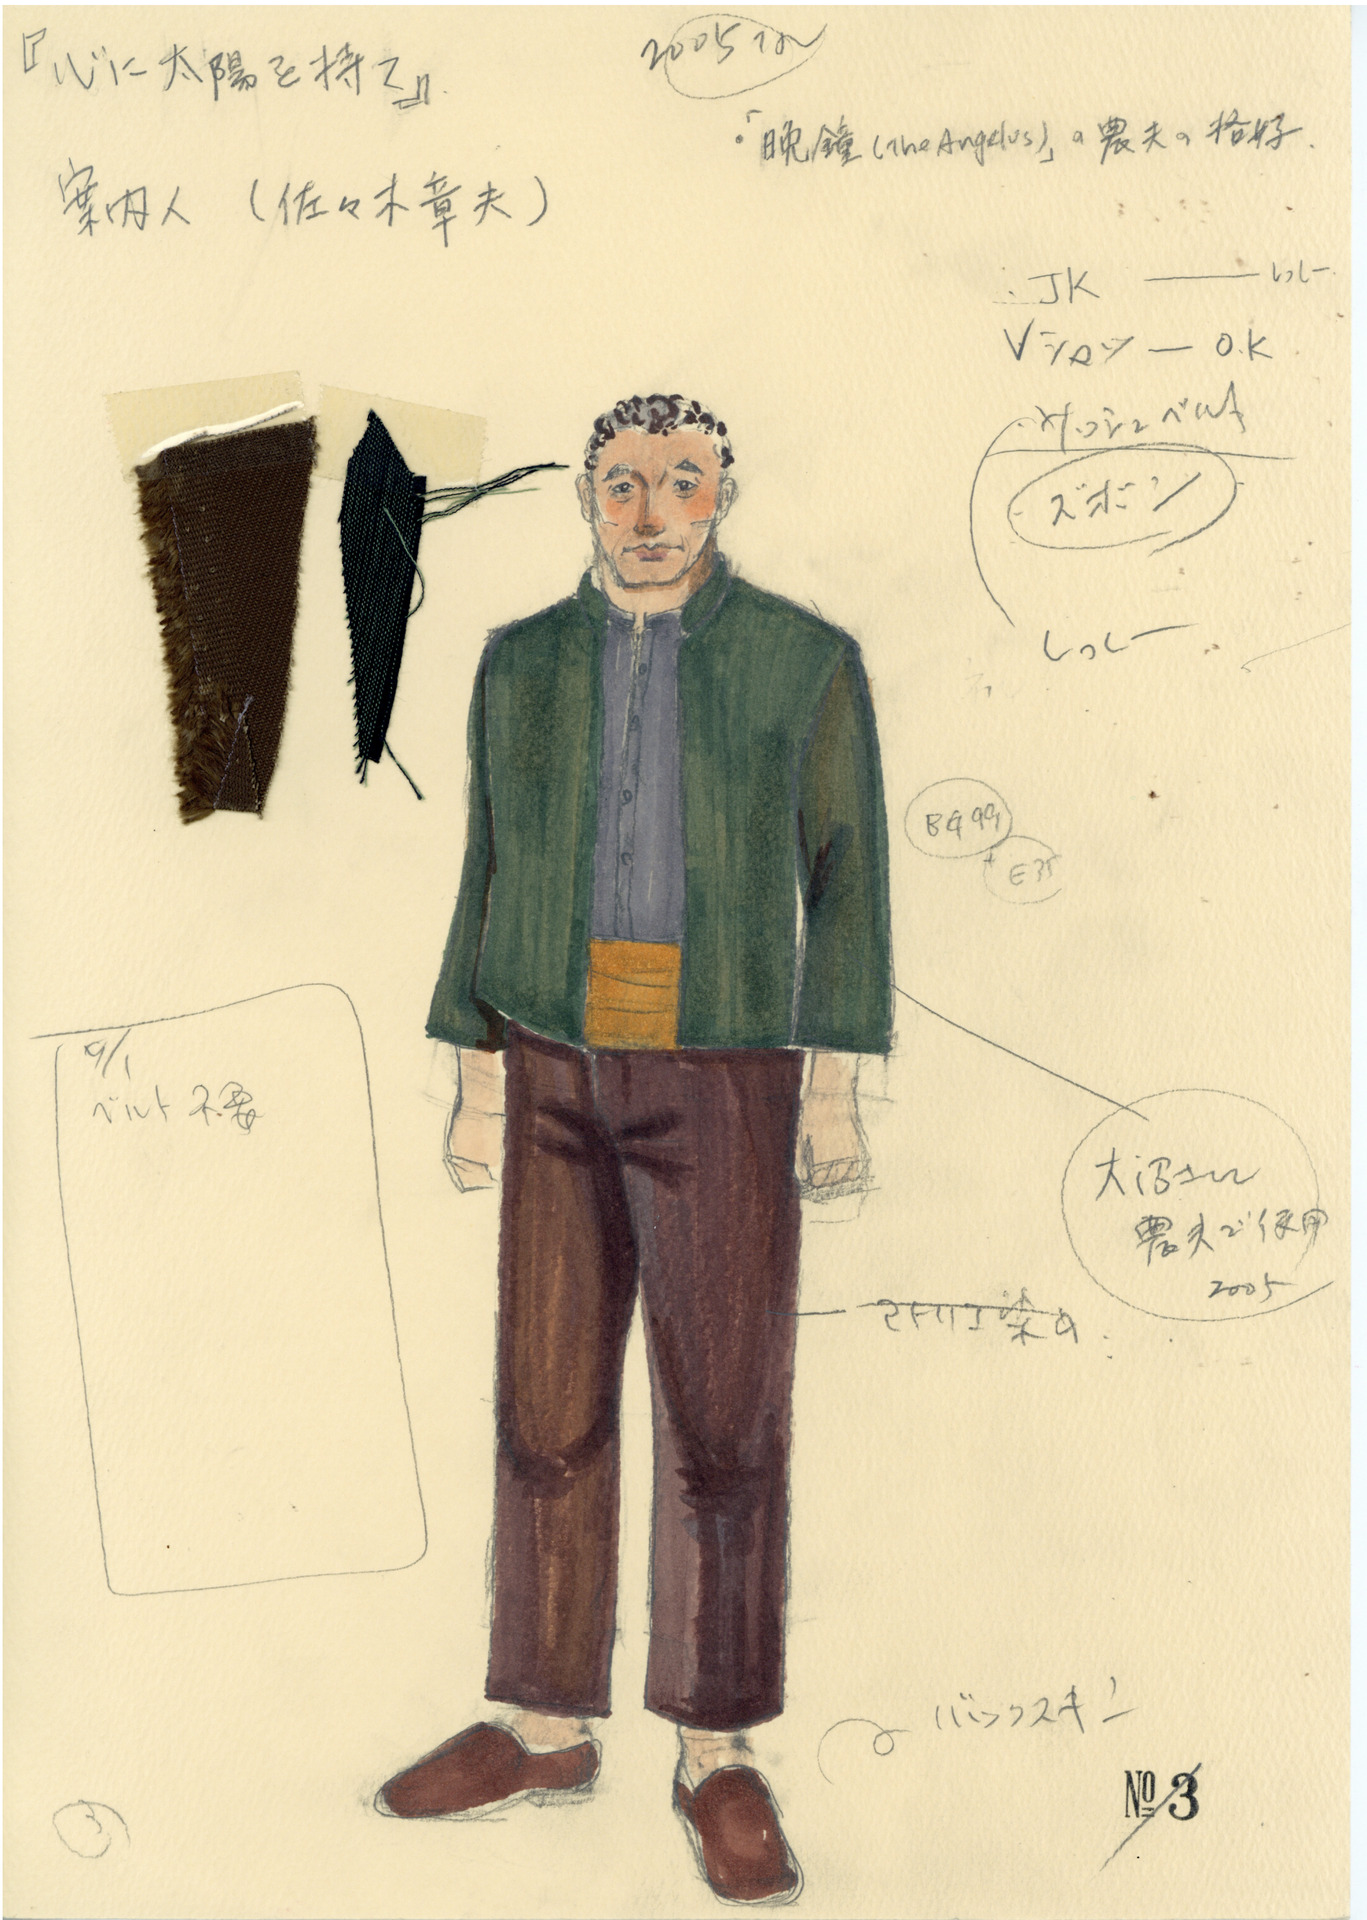 『心に太陽を持て』
2005
・「晩鐘(The Angelus)」の農夫の格好.
案内人 (佐々木章夫)
JK ——
Vシャツ — O.K
サッシュベルト
ズボン
BG99
+
E35
9/1
ベルト不要
大沼さん
農夫で使用
2005
アトリエ染め
バックスキン
No 3
3